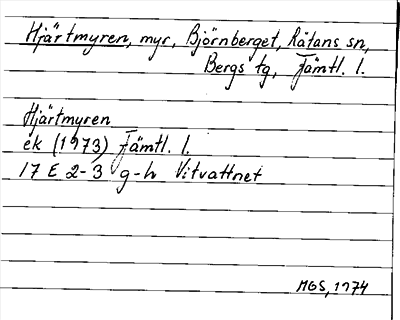 Hjärtmyren, myr, Björnberget, Rätans sn,
Bergs tg, Jämtl. l.
Hjärtmyren
ek (1973) Jämtl. l.
17 E 2-3 g-h Vitvattnet
MGS, 1974